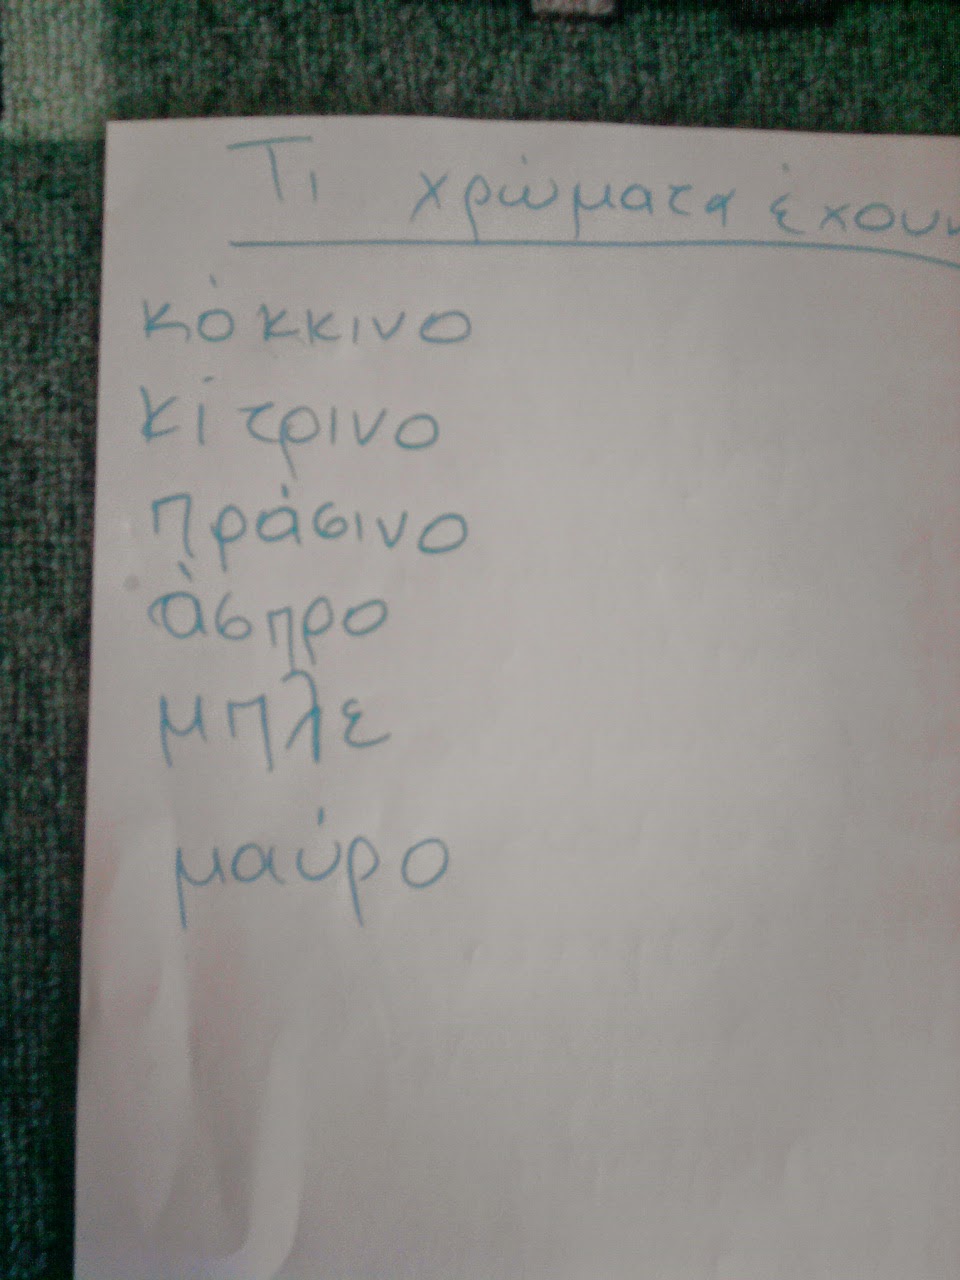 Τι χρώματα έχουν
κόκκινο
κίτρινο
πράσινο
άσπρο
μπλε
μαύρο